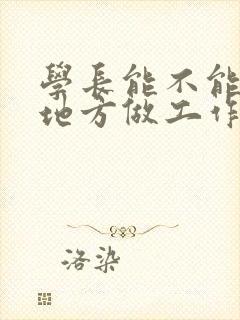 學長能不能
地方做工作
洛染